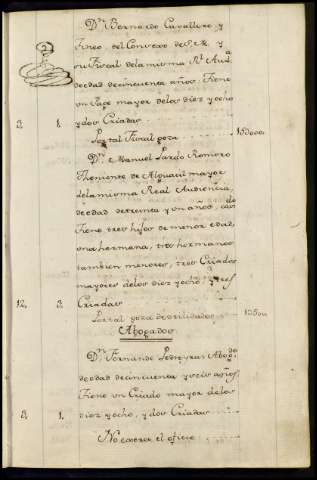 Dⁿ. Bernardo Cavallero, y
Tineo, del Consexo de S. M. y
su Fiscal de la misma Rl. Audª
de edad de cincuenta años. Tiene
un Page mayor de los diez y ocho
2, 1, y dos Criadas
Por tal Fiscal goza
Dⁿ. Manuel Pardo Romero
Theniente de Alguacil mayor
de la misma Real Audiencia,
de edad de treinta y un años,
Tiene tres hijos de menor edad,
una hermana, tres hermanos
tambien menores, tres Criados
mayores de los diez y ocho, y tres
12, 3, Criadas
Por tal goza de utilidades
Abogados
Dⁿ. Fernando Abogdo
de edad de cincuenta y seis años
Tiene un Criado mayor de los
1, diez y ocho, y dos Criadas
No exerce el oficio